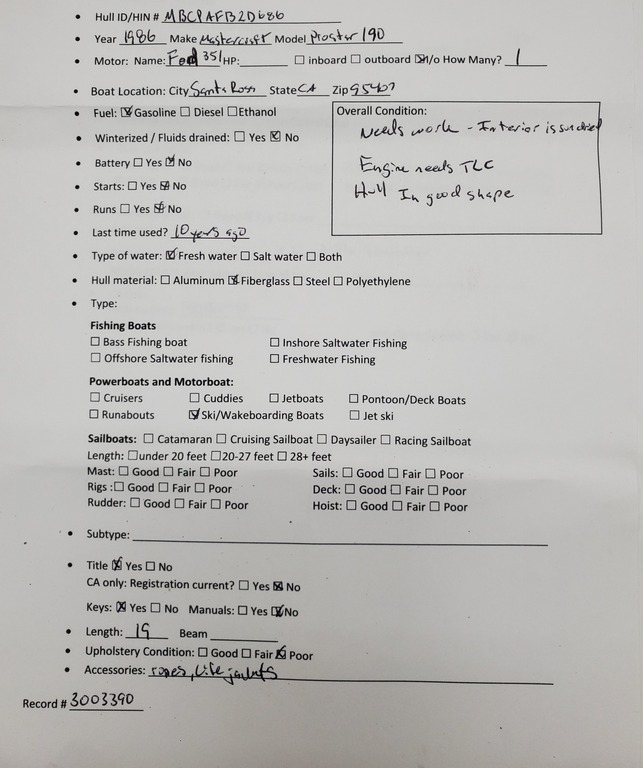 • Hull ID/HIN # MBCPAFB2D686
• Year 1986 Make Mastercraft Model Prostar 190
• Motor: Name: Ford 351 HP: ☐ inboard ☐ outboard ☑ I/o How Many? 1
• Boat Location: City Santa Rosa State CA Zip 95407
• Fuel: ☑ Gasoline ☐ Diesel ☐ Ethanol
Overall Condition:
Needs work - Interior is sundried
Engine needs TLC
Hull In good shape
• Winterized / Fluids drained: ☐ Yes ☑ No
• Battery ☐ Yes ☑ No
• Starts: ☐ Yes ☑ No
• Runs ☐ Yes ☑ No
• Last time used? 10 years ago
• Type of water: ☑ Fresh water ☐ Salt water ☐ Both
• Hull material: ☐ Aluminum ☑ Fiberglass ☐ Steel ☐ Polyethylene
• Type:
Fishing Boats
☐ Bass Fishing boat ☐ Inshore Saltwater Fishing
☐ Offshore Saltwater fishing ☐ Freshwater Fishing
Powerboats and Motorboat:
☐ Cruisers ☐ Cuddies ☐ Jetboats ☐ Pontoon/Deck Boats
☐ Runabouts ☑ Ski/Wakeboarding Boats ☐ Jet ski
Sailboats: ☐ Catamaran ☐ Cruising Sailboat ☐ Daysailer ☐ Racing Sailboat
Length: ☐ under 20 feet ☐ 20-27 feet ☐ 28+ feet
Mast: ☐ Good ☐ Fair ☐ Poor Sails: ☐ Good ☐ Fair ☐ Poor
Rigs : ☐ Good ☐ Fair ☐ Poor Deck: ☐ Good ☐ Fair ☐ Poor
Rudder: ☐ Good ☐ Fair ☐ Poor Hoist: ☐ Good ☐ Fair ☐ Poor
• Subtype:
• Title ☒ Yes ☐ No
CA only: Registration current? ☐ Yes ☒ No
Keys: ☒ Yes ☐ No Manuals: ☐ Yes ☑ No
• Length: 19 Beam
• Upholstery Condition: ☐ Good ☐ Fair ☑ Poor
• Accessories: ropes, Life jackets
Record # 3003390